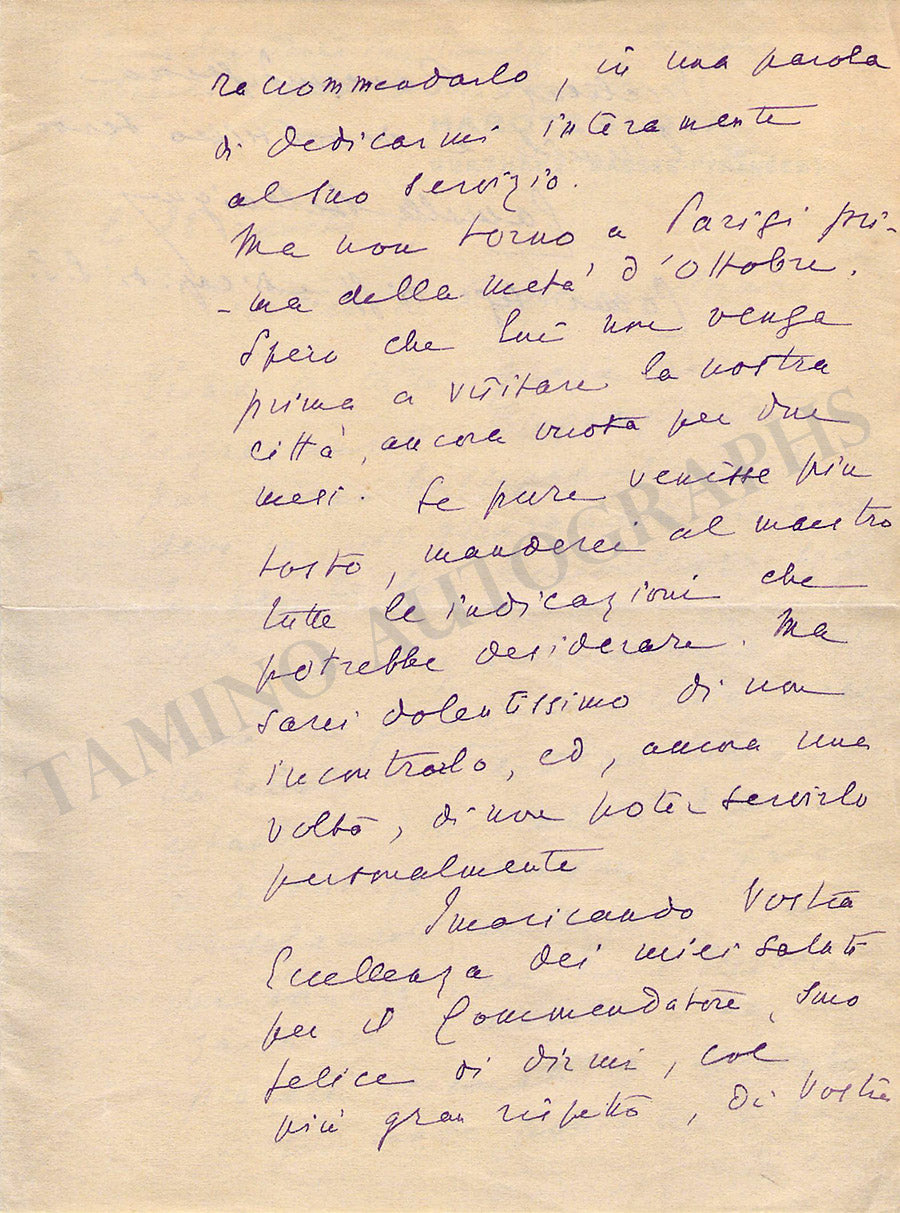 raccommandarlo, in una parola
di dedicarmi interamente
al suo servizio.
Ma non torno a Parigi pri-
-ma della metà d'Ottobre.
Spero che lui non venga
prima a visitare la nostra
città, ancora vuota per due
mesi. Se pure venisse piu
tosto, manderei al maestro
tutte le indicazioni che
potrebbe desiderare. Ma
sarei dolentissimo di non
incontrarlo, ed, ancora una
volta, di non poter servirlo
personalmente
Incaricando Vostra
Eccellenza dei miei saluti
per il Commendatore, sono
felice di dirmi, col
più gran rispetto, di Vostra
TAMINO AUTOGRAPHS